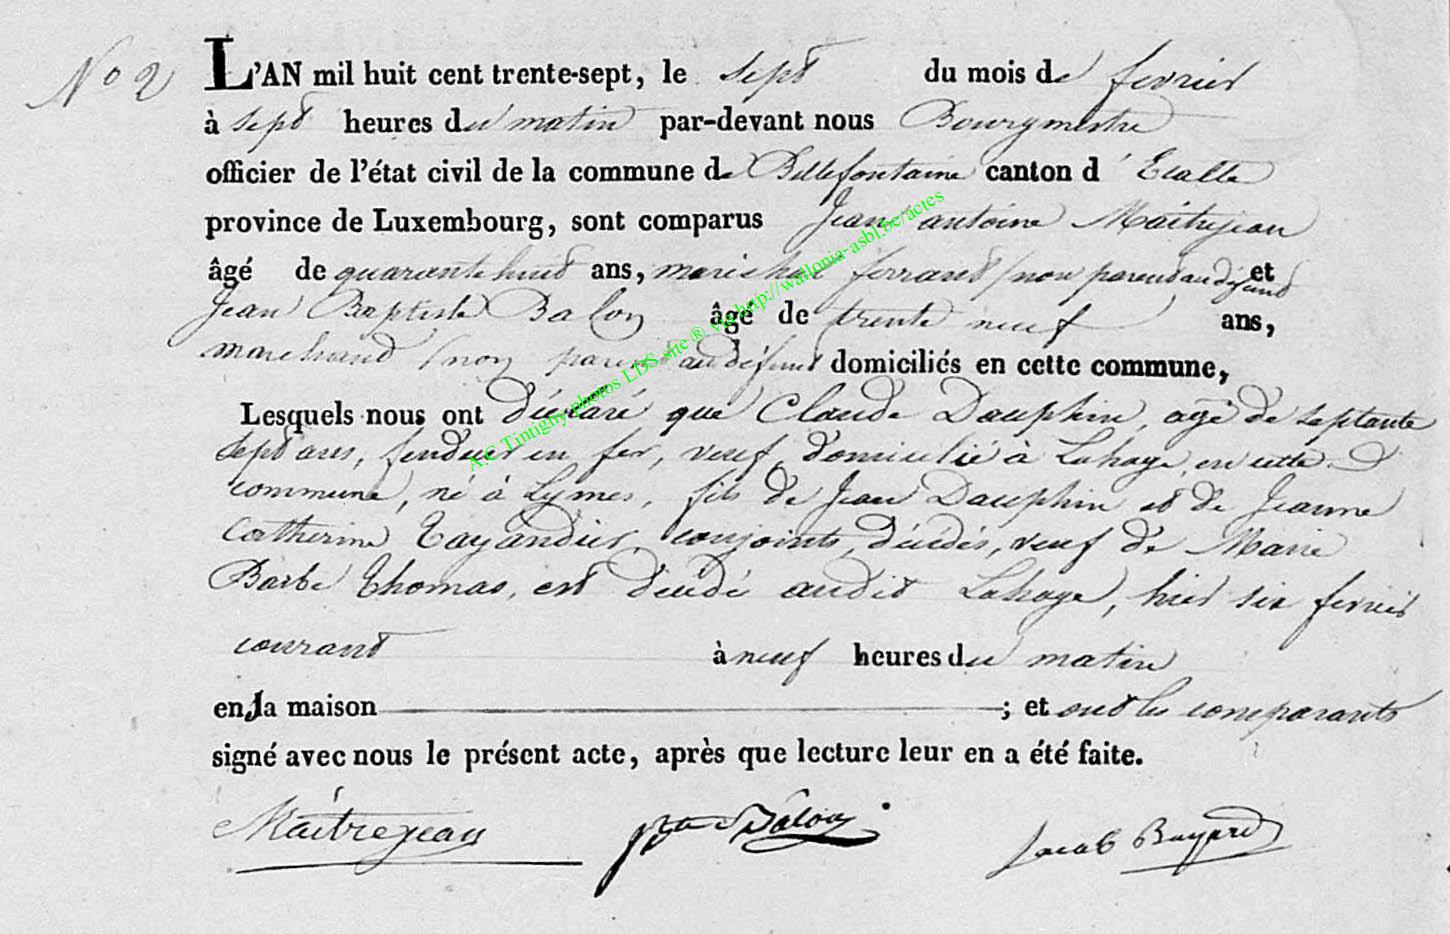 No 2
L'AN mil huit cent trente-sept, le sept du mois de fevrier
à sept heures du matin par-devant nous Bourgmestre
officier de l'état civil de la commune de Bellefontaine canton d'Etalle
province de Luxembourg, sont comparus Jean antoine Maîtrejean
âgé de quarante huit ans, marishal ferrant (non parent au défunt et
Jean Baptiste Balon âgé de trente neuf ans,
marchand (non parent au défunt domiciliés en cette commune,
Lesquels nous ont déclaré que Claude Dauphin, agé de septante
sept ans, fendeur en fer, veuf, domicilié à Lahage en cette
commune, né à Lymes, fils de Jean Dauphin et de Jeanne
Catherine Tayandier, conjoints, décédés, veuf de Marie
Barbe Thomas, est décédé audit Lahage, hier six fevrier
courant à neuf heures du matin
en la maison ; et ont les comparants
signé avec nous le présent acte, après que lecture leur en a été faite.
Maîtrejean Balon Jacob Bayard
A.C Tintigny photos LDS site ® via http://wallonia-asbl.be/actes